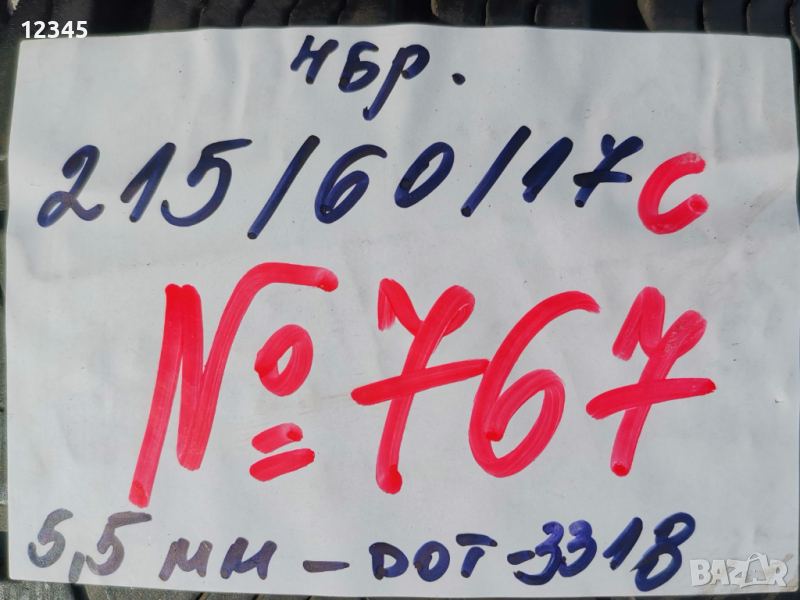 12345
4бр.
215/60/17C
№767
5,5 мм – DOT-3318
BAZAR